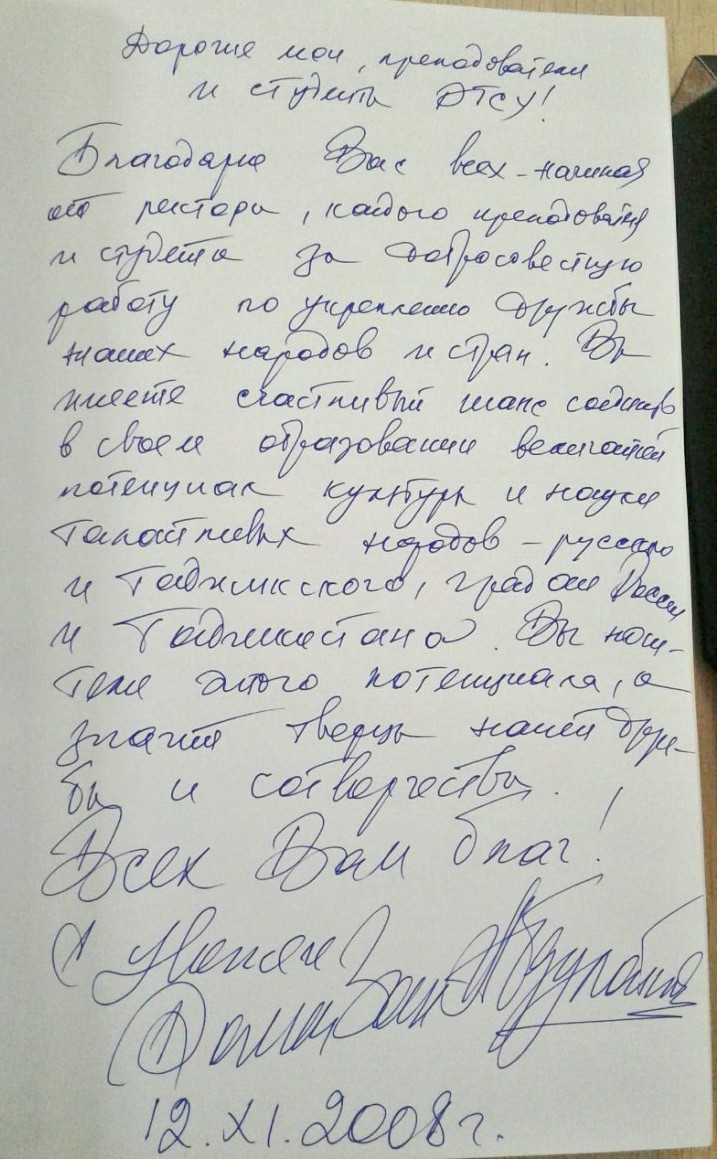 Дорогие мои, преподаватели
и студенты РТСУ!
Благодарю Вас всех - начиная
от ректора, каждого преподавателя
и студента за добросовестную
работу по укреплению дружбы
наших народов и стран. Вы
имеете счастливый шанс соединить
в своем образовании величайший
потенциал культуры и науки
талантливых народов - русского
и таджикского, граждан России
и Таджикистана. Вы носи-
тели этого потенциала, а
значит творцы нашей друж-
бы и сотворчества.
Всех Вам благ!
С уважением
Рамазан Абдулатипов
12.XI.2008г.